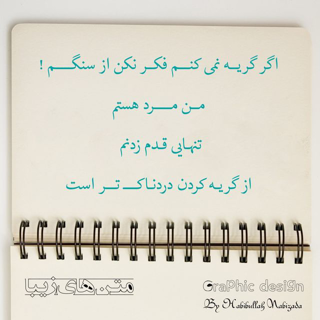 اگر گریه نمی کنم فکر نکن از سنگم !
من مرد هستم
تنهایی قدم زدنم
از گریه کردن دردناک تر است
متن های زیبا
GraPhic desi9n
By Habibullah Nabizada